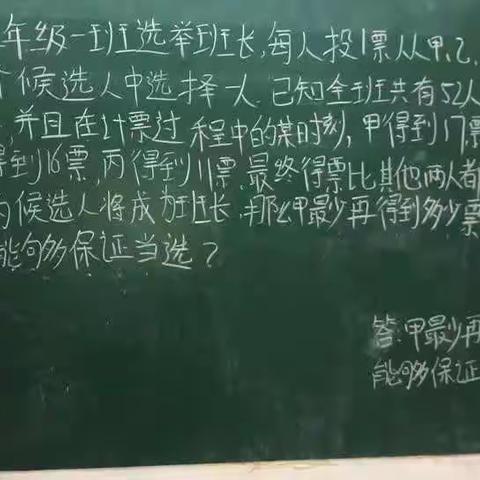 年级一班选举班长,每人投1票从甲、乙、
个候选人中选择一人.已知全班共有52人
,并且在计票过程中的某时刻,甲得到17票
得到16票,丙得到11票.最终得票比其他两人都
的候选人将成为班长.那么甲最少再得到多少票
能够保证当选?
答:甲最少再
能够保证